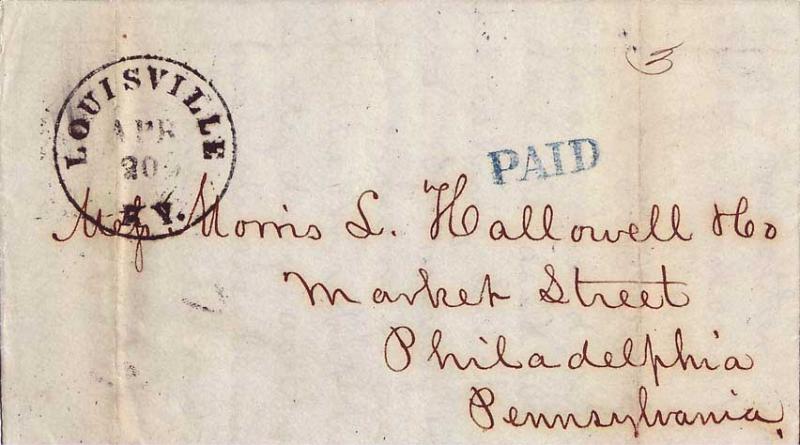 3
LOUISVILLE
APR
20
KY.
PAID
Mess. Morris L. Hallowell & Co
Market Street
Philadelphia
Pennsylvania.